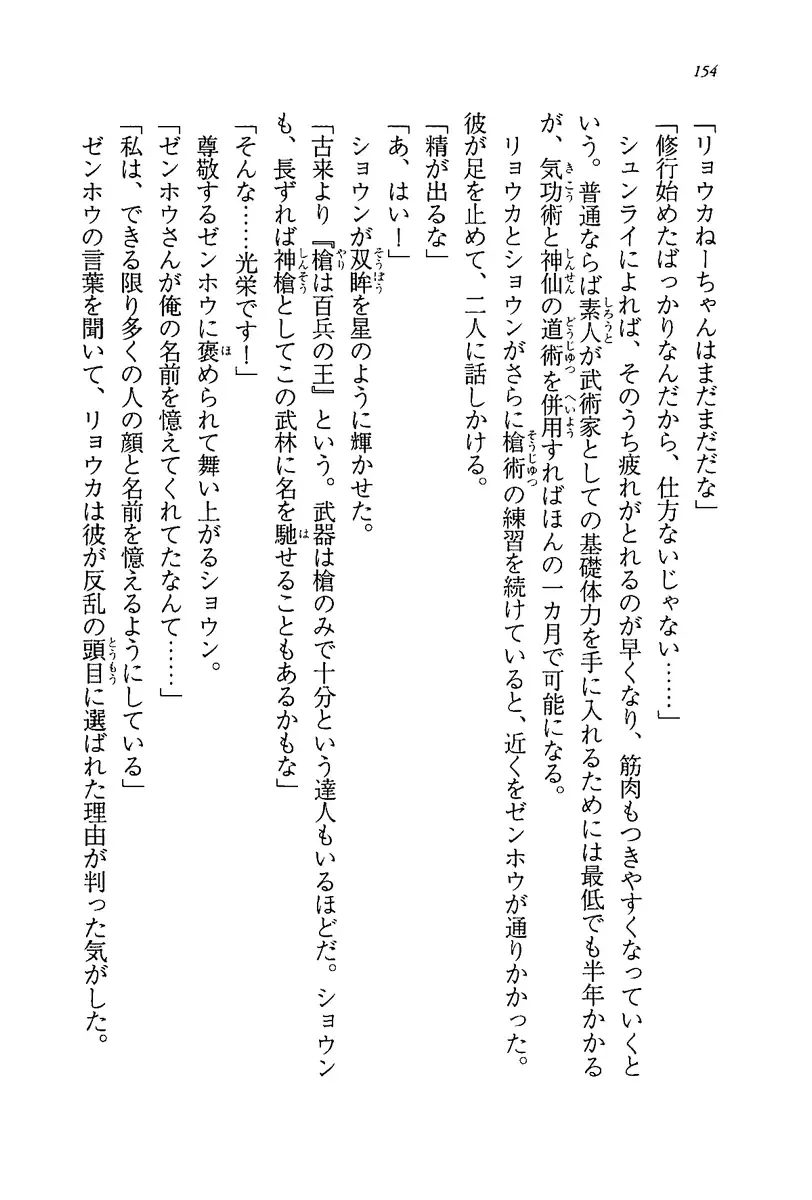 154
「リョウカねーちゃんはまだまだだな」
「修行始めたばっかりなんだから、仕方ないじゃない……」
シュンライによれば、そのうち疲れがとれるのが早くなり、筋肉もつきやすくなっていくと
いう。普通ならば素人が武術家としての基礎体力を手に入れるためには最低でも半年かかる
が、気功術と神仙の道術を併用すればほんの一カ月で可能になる。
リョウカとショウンがさらに槍術の練習を続けていると、近くをゼンホウが通りかかった。
彼が足を止めて、二人に話しかける。
「精が出るな」
「あ、はい！」
ショウンが双眸を星のように輝かせた。
「古来より『槍は百兵の王』という。武器は槍のみで十分という達人もいるほどだ。ショウン
も、長ずれば神槍としてこの武林に名を馳せることもあるかもな」
「そんな……光栄です！」
尊敬するゼンホウに褒められて舞い上がるショウン。
「ゼンホウさんが俺の名前を憶えてくれてたなんて……」
「私は、できる限り多くの人の顔と名前を憶えるようにしている」
ゼンホウの言葉を聞いて、リョウカは彼が反乱の頭目に選ばれた理由が判った気がした。